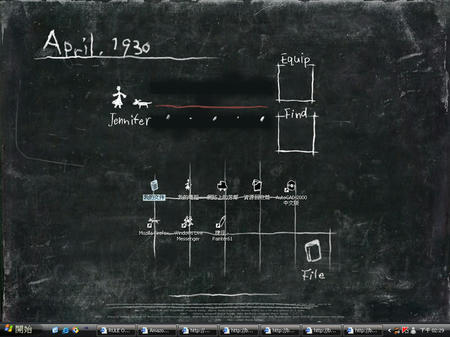 April, 1930
Equip
Jennifer
Find
我的文件
我的電腦
網路上的芳鄰
資源回收筒
AutoCAD 2000
中文版
Mozilla Firefox
Windows Live
Messenger
捷徑
File
開始
RULE O...
Amazo...
http://...
http://b...
http://b...
http://b...
http://b...
http://b...
下午 02:29